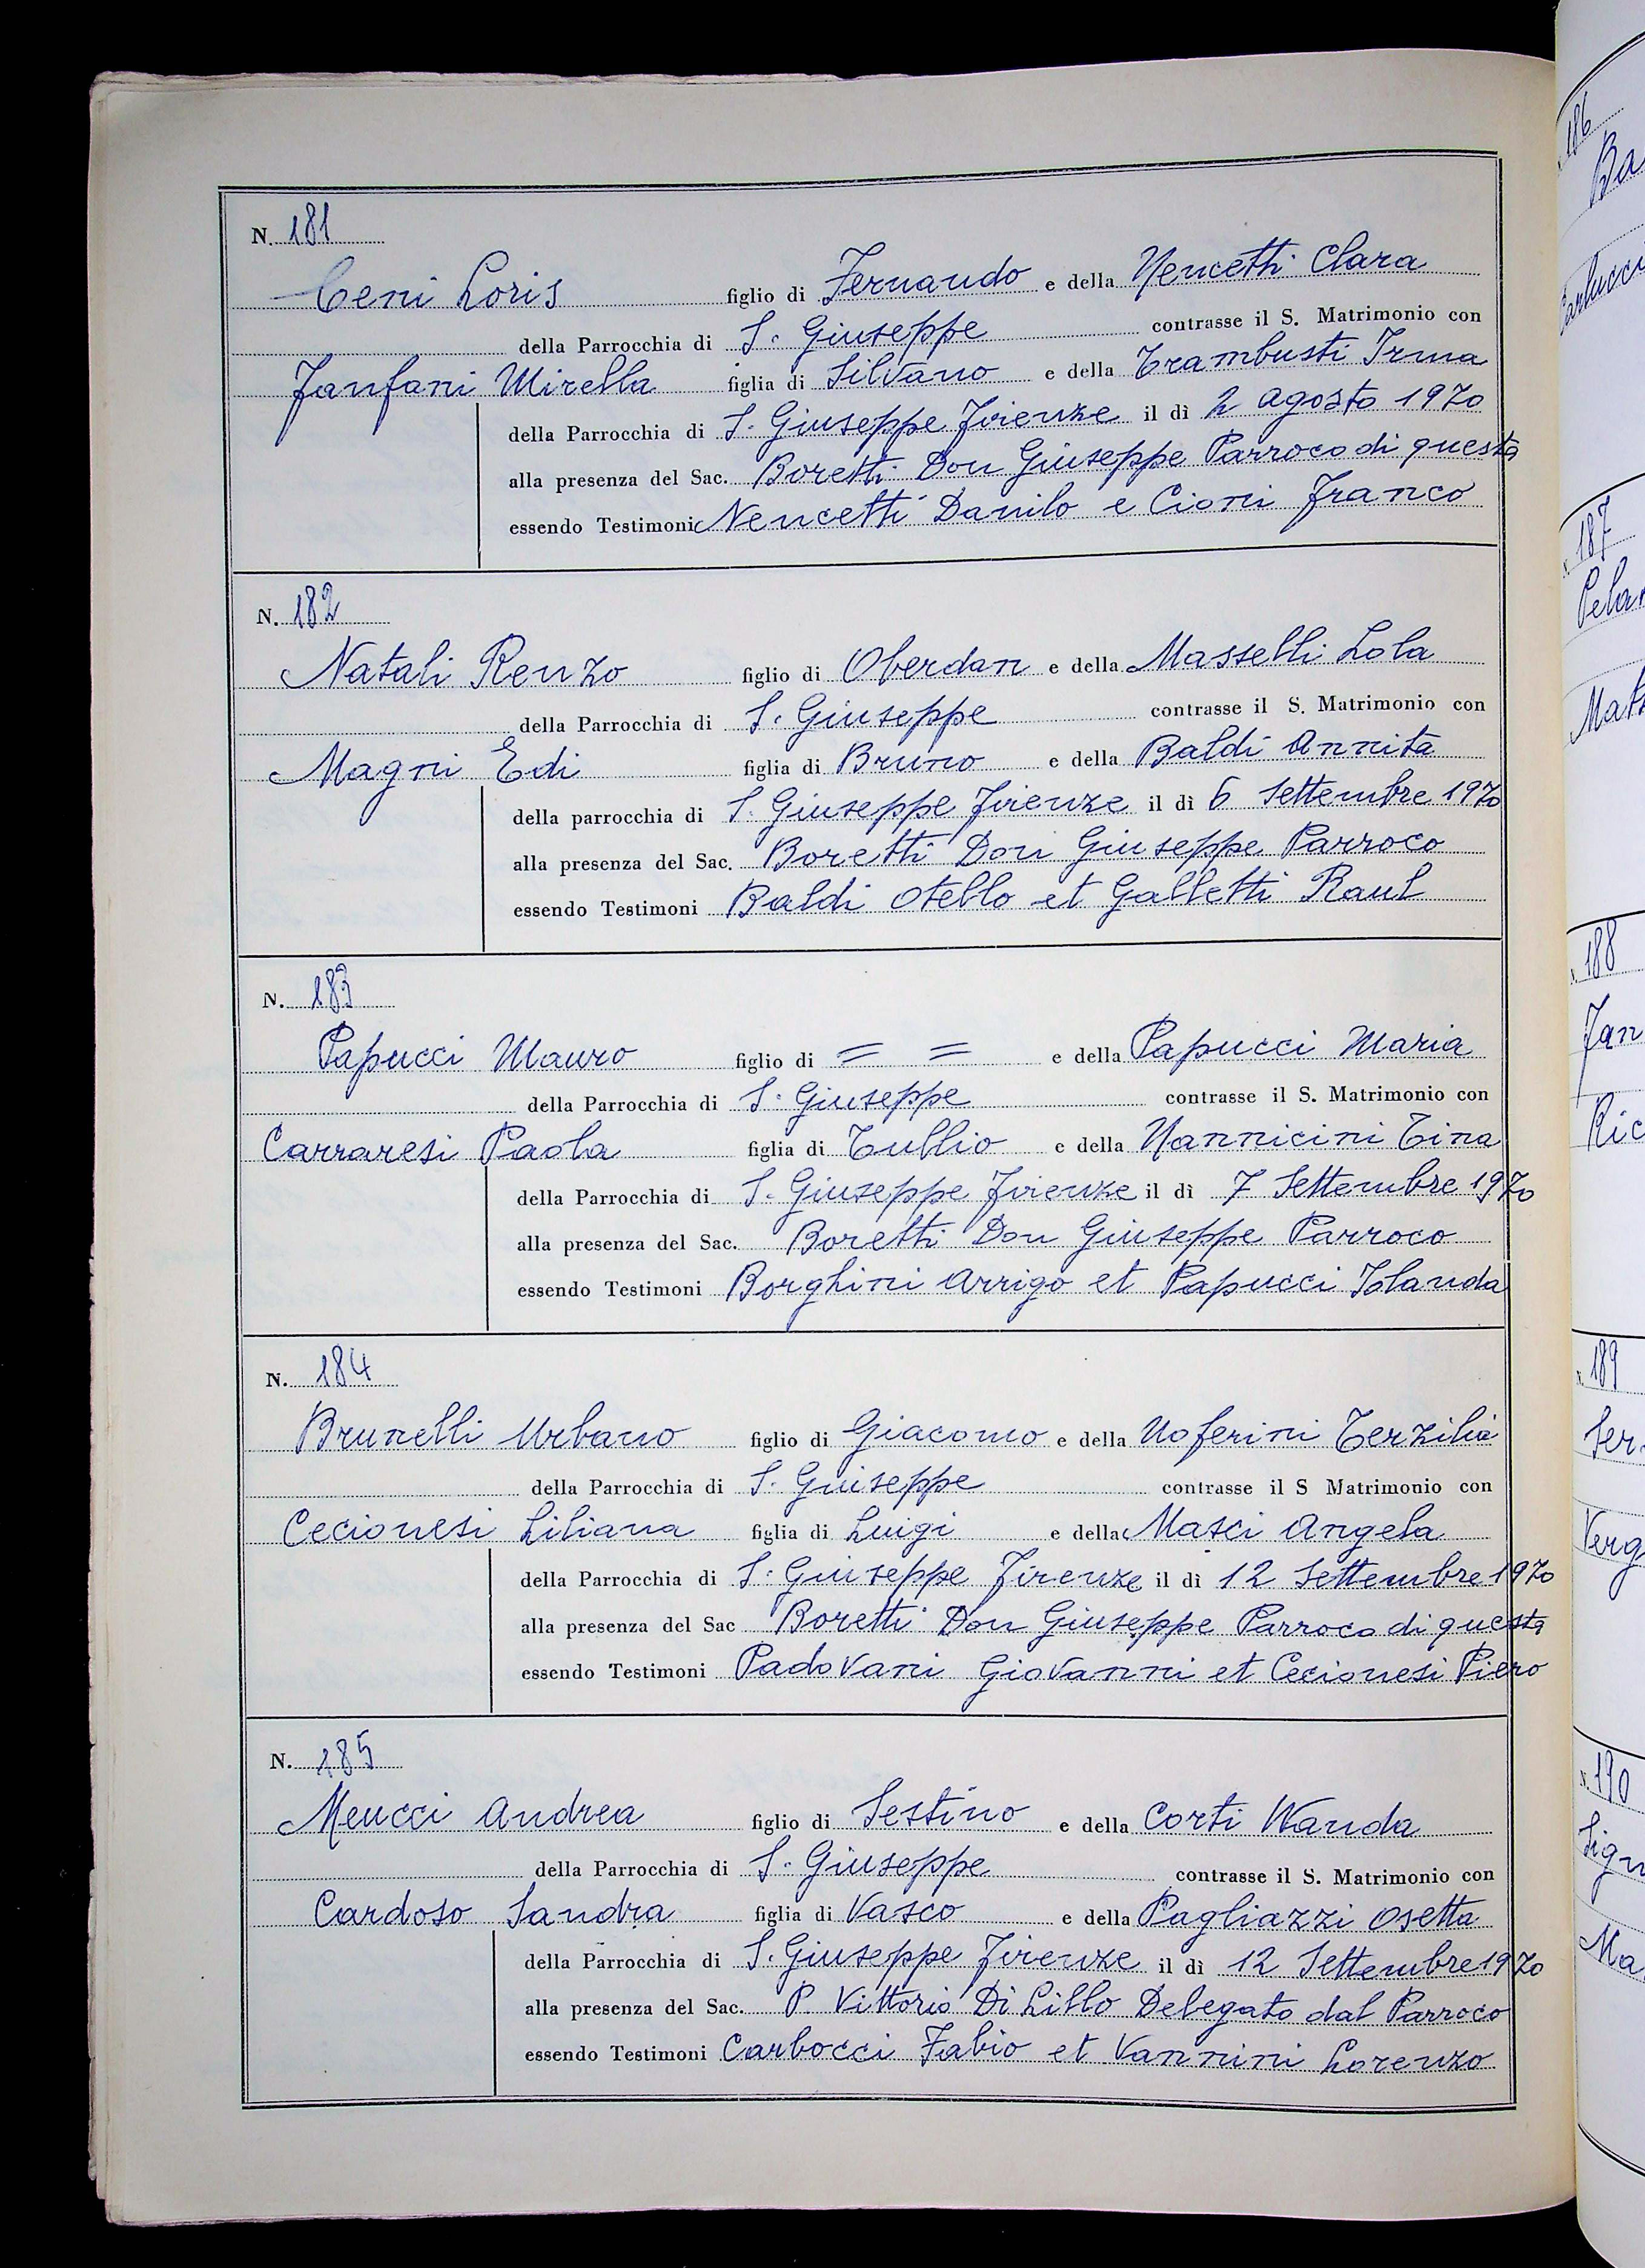 N. 181
Ceni Loris figlio di Fernando e della Nencetti Clara
della Parrocchia di S. Giuseppe contrasse il S. Matrimonio con
Fanfani Mirella figlia di Silvano e della Trambusti Irma
della Parrocchia di S. Giuseppe Firenze il dì 2 Agosto 1970
alla presenza del Sac. Boretti Don Giuseppe Parroco di questa
essendo Testimoni Nencetti Danilo e Cioni Franco
N. 182
Natali Renzo figlio di Oberdan e della Masselli Lola
della Parrocchia di S. Giuseppe contrasse il S. Matrimonio con
Magni Edi figlia di Bruno e della Baldi Annita
della parrocchia di S. Giuseppe Firenze il dì 6 Settembre 1970
alla presenza del Sac. Boretti Don Giuseppe Parroco
essendo Testimoni Baldi Otello et Galletti Raul
N. 183
Papucci Mauro figlio di = = e della Papucci Maria
della Parrocchia di S. Giuseppe contrasse il S. Matrimonio con
Carraresi Paola figlia di Tullio e della Nannicini Tina
della Parrocchia di S. Giuseppe Firenze il dì 7 Settembre 1970
alla presenza del Sac. Boretti Don Giuseppe Parroco
essendo Testimoni Borghini Arrigo et Papucci Iolanda
N. 184
Brunelli Urbano figlio di Giacomo e della Noferini Terzilia
della Parrocchia di S. Giuseppe contrasse il S Matrimonio con
Cecionesi Liliana figlia di Luigi e della Masci Angela
della Parrocchia di S. Giuseppe Firenze il dì 12 Settembre 1970
alla presenza del Sac Boretti Don Giuseppe Parroco di questa
essendo Testimoni Padovani Giovanni et Cecionesi Piero
N. 185
Meucci Andrea figlio di Sestino e della Corti Wanda
della Parrocchia di S. Giuseppe contrasse il S. Matrimonio con
Cardoso Sandra figlia di Vasco e della Pagliazzi Osetta
della Parrocchia di S. Giuseppe Firenze il dì 12 Settembre 1970
alla presenza del Sac. P. Vittorio Di Lillo Delegato dal Parroco
essendo Testimoni Carbocci Fabio et Vannini Lorenzo
186
187
188
189
190